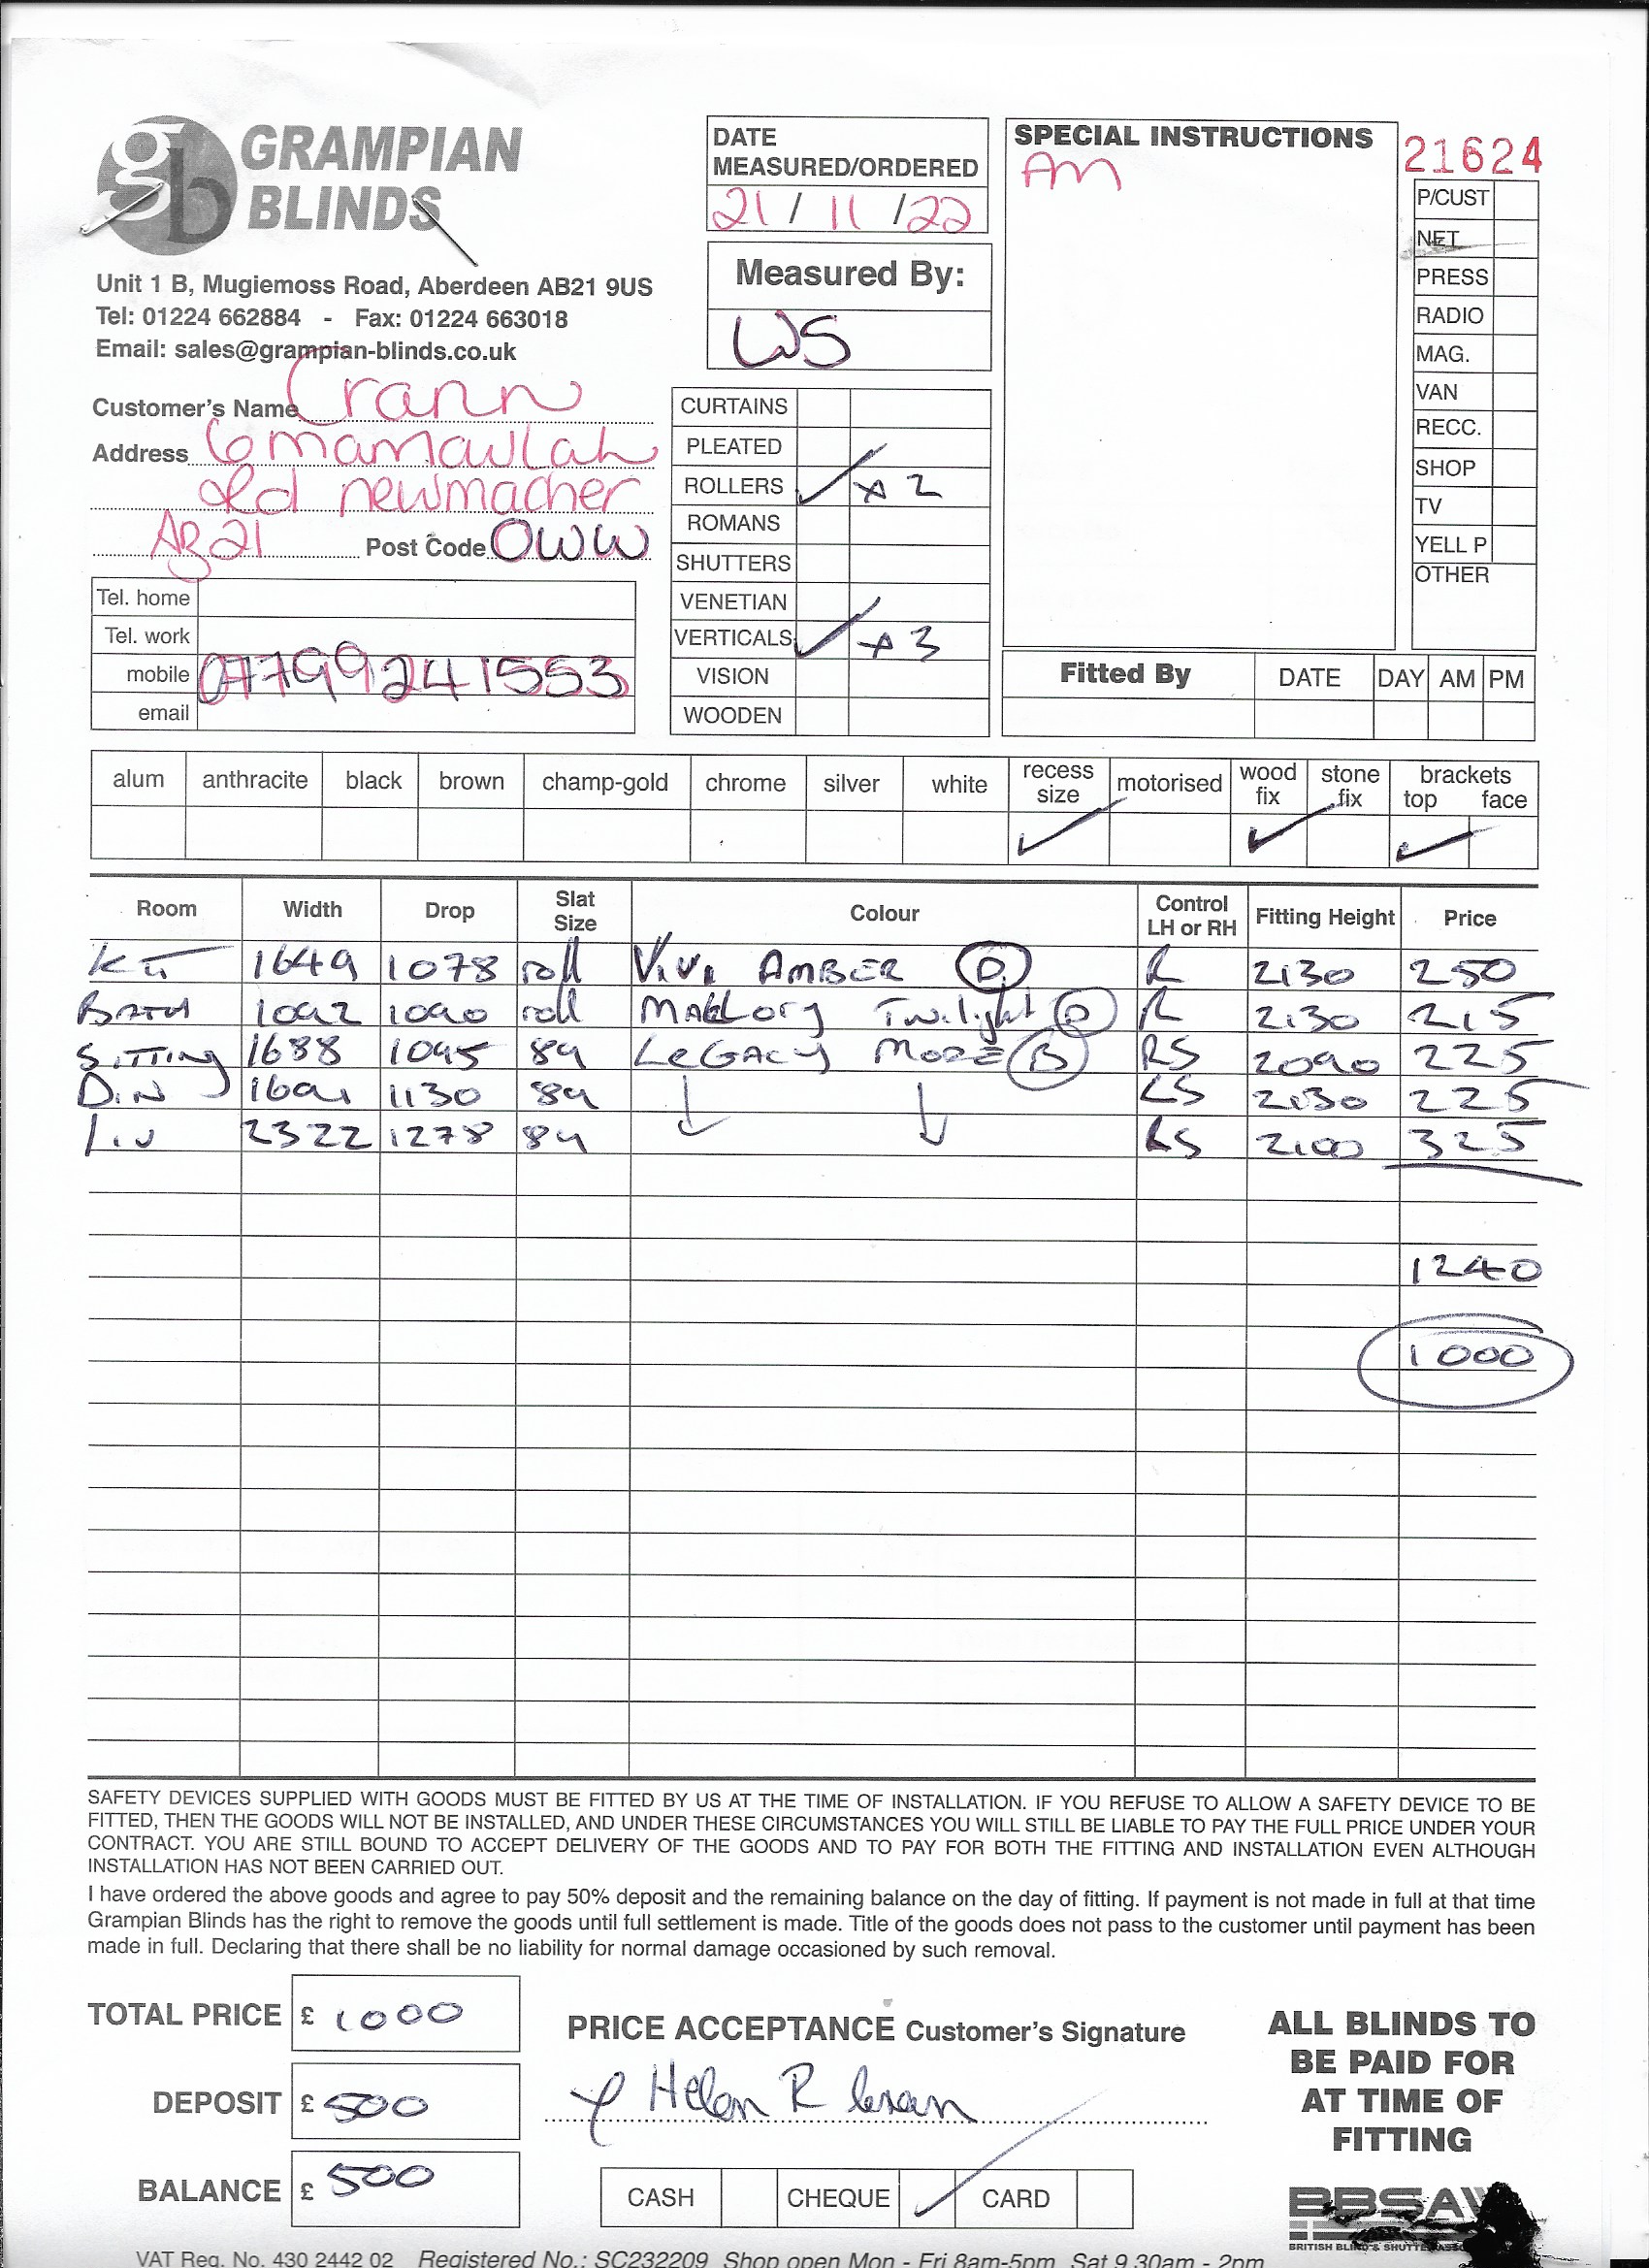 GRAMPIAN
BLINDS
Unit 1 B, Mugiemoss Road, Aberdeen AB21 9US
Tel: 01224 662884 - Fax: 01224 663018
Email: sales@grampian-blinds.co.uk
Customer's Name Crann
Address 6 mamawlah
old newmacher
AB21 Post Code OWW
Tel. home
Tel. work
mobile 07799241553
email
DATE
MEASURED/ORDERED
21 / 11 / 22
Measured By:
WS
CURTAINS
PLEATED
ROLLERS ✓ x 2
ROMANS
SHUTTERS
VENETIAN
VERTICALS ✓ x 3
VISION
WOODEN
SPECIAL INSTRUCTIONS
AM
21624
P/CUST
NET
PRESS
RADIO
MAG.
VAN
RECC.
SHOP
TV
YELL P
OTHER
Fitted By DATE DAY AM PM
alum anthracite black brown champ-gold chrome silver white recess size motorised wood fix stone fix brackets top face
✓ ✓ ✓
Room Width Drop Slat Size Colour Control LH or RH Fitting Height Price
Kit 1649 1078 roll Vivi AMBER D R 2130 250
BATH 1092 1090 roll Mallory Twilight D R 2130 215
Sitting 1688 1095 89 LEGACY MODE B RS 2090 225
Din 1691 1130 89 ↓ ↓ LS 2130 225
Liv 2322 1278 89 RS 2100 325
1240
1000
SAFETY DEVICES SUPPLIED WITH GOODS MUST BE FITTED BY US AT THE TIME OF INSTALLATION. IF YOU REFUSE TO ALLOW A SAFETY DEVICE TO BE
FITTED, THEN THE GOODS WILL NOT BE INSTALLED, AND UNDER THESE CIRCUMSTANCES YOU WILL STILL BE LIABLE TO PAY THE FULL PRICE UNDER YOUR
CONTRACT. YOU ARE STILL BOUND TO ACCEPT DELIVERY OF THE GOODS AND TO PAY FOR BOTH THE FITTING AND INSTALLATION EVEN ALTHOUGH
INSTALLATION HAS NOT BEEN CARRIED OUT.
I have ordered the above goods and agree to pay 50% deposit and the remaining balance on the day of fitting. If payment is not made in full at that time
Grampian Blinds has the right to remove the goods until full settlement is made. Title of the goods does not pass to the customer until payment has been
made in full. Declaring that there shall be no liability for normal damage occasioned by such removal.
TOTAL PRICE £ 1000
DEPOSIT £ 500
BALANCE £ 500
PRICE ACCEPTANCE Customer's Signature
Helen R Crann
CASH CHEQUE ✓ CARD
ALL BLINDS TO
BE PAID FOR
AT TIME OF
FITTING
BBSA
VAT Reg. No. 430 2442 02 Registered No.: SC232209 Shop open Mon - Fri 8am-5pm Sat 9.30am - 2pm